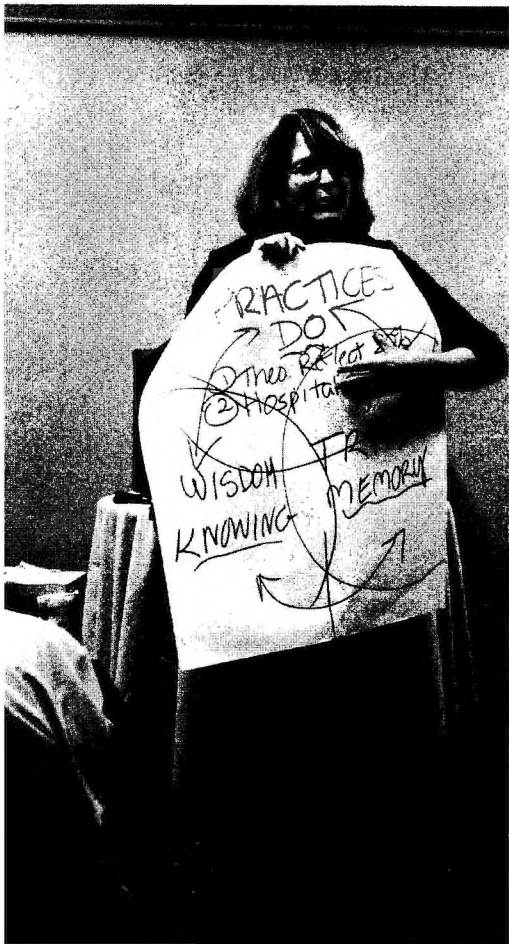 PRACTICES
DO
① Theo Reflect
② Hospita
WISDOM
KNOWING
TR
MEMORY